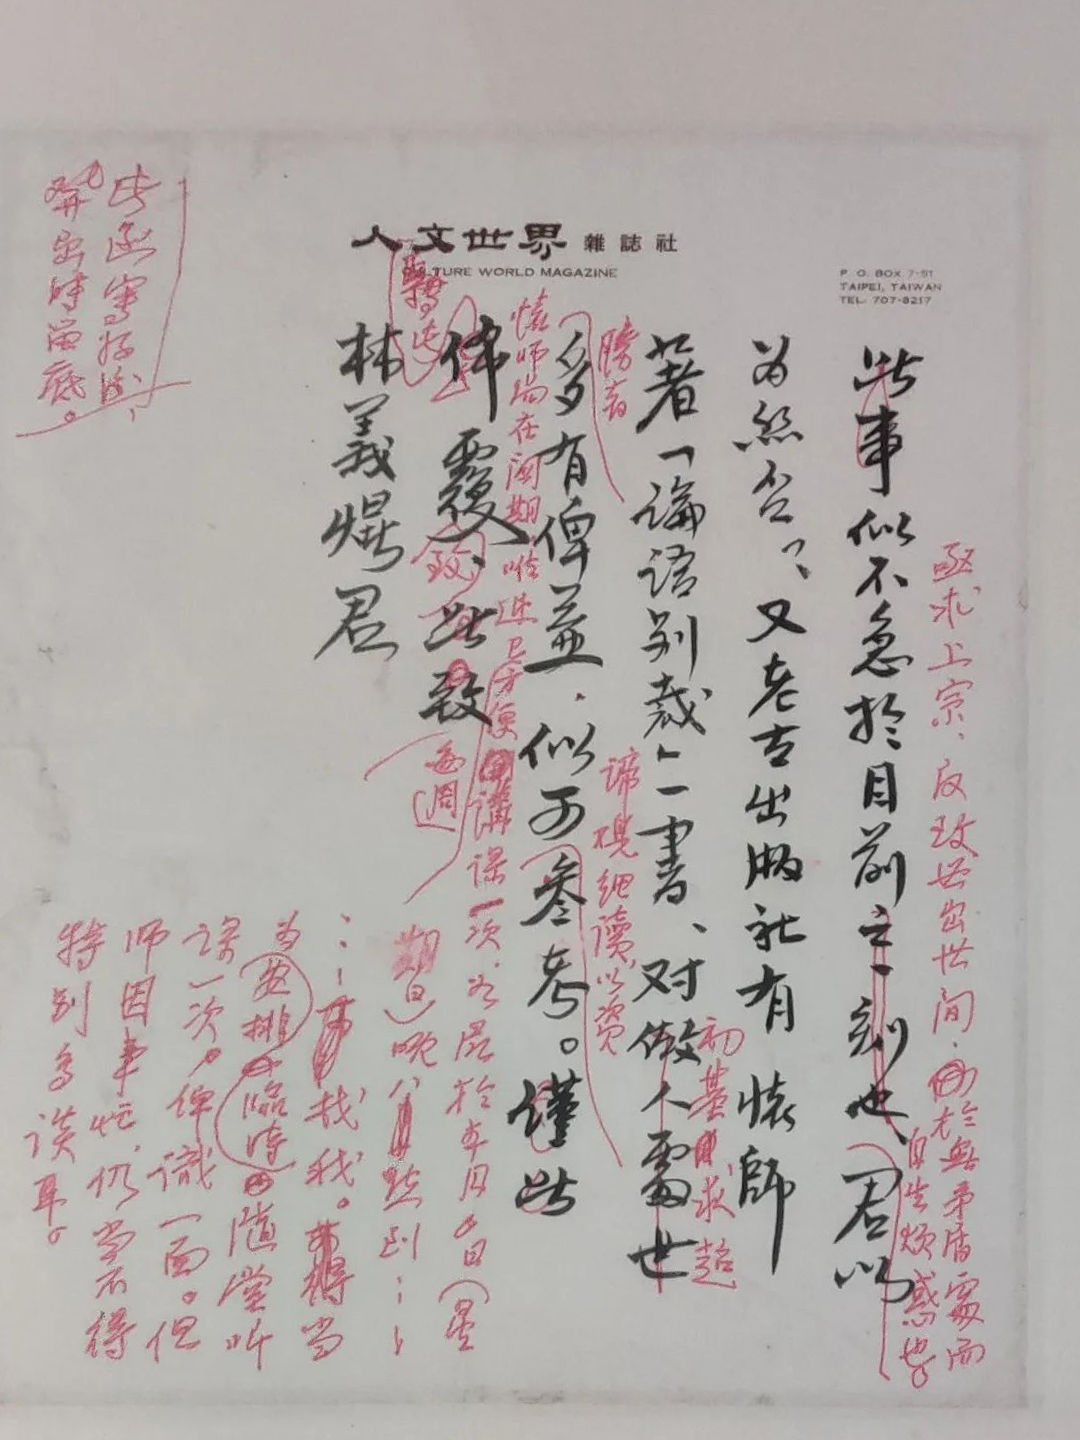 人文世界 雜誌社
CULTURE WORLD MAGAZINE
P. O. BOX 7-51
TAIPEI, TAIWAN
TEL. 707-8217
此事似不急於目前之一刻也 君以
為然否?又老古出版社有 懷師
著「論語別裁」一書、对做人處世
多有俾益、似可叁考。謹此
俾覆、此致
林義焜君
亟求上宗、反致
出世间、
於無矛盾處而
自生煩惑也。
初基 求超
諦視細讀,以資
勝者
懷師尚在閉關期
惟 已方便 講課一次、
於本月 日(星
每週
期 日)晚八點到……
……找我。 當
為安排 臨時 隨堂听
课一次,俾識一面。但
师因事忙,仍當不得
特别多谈耳。
此函寫好後,
發出時當底。